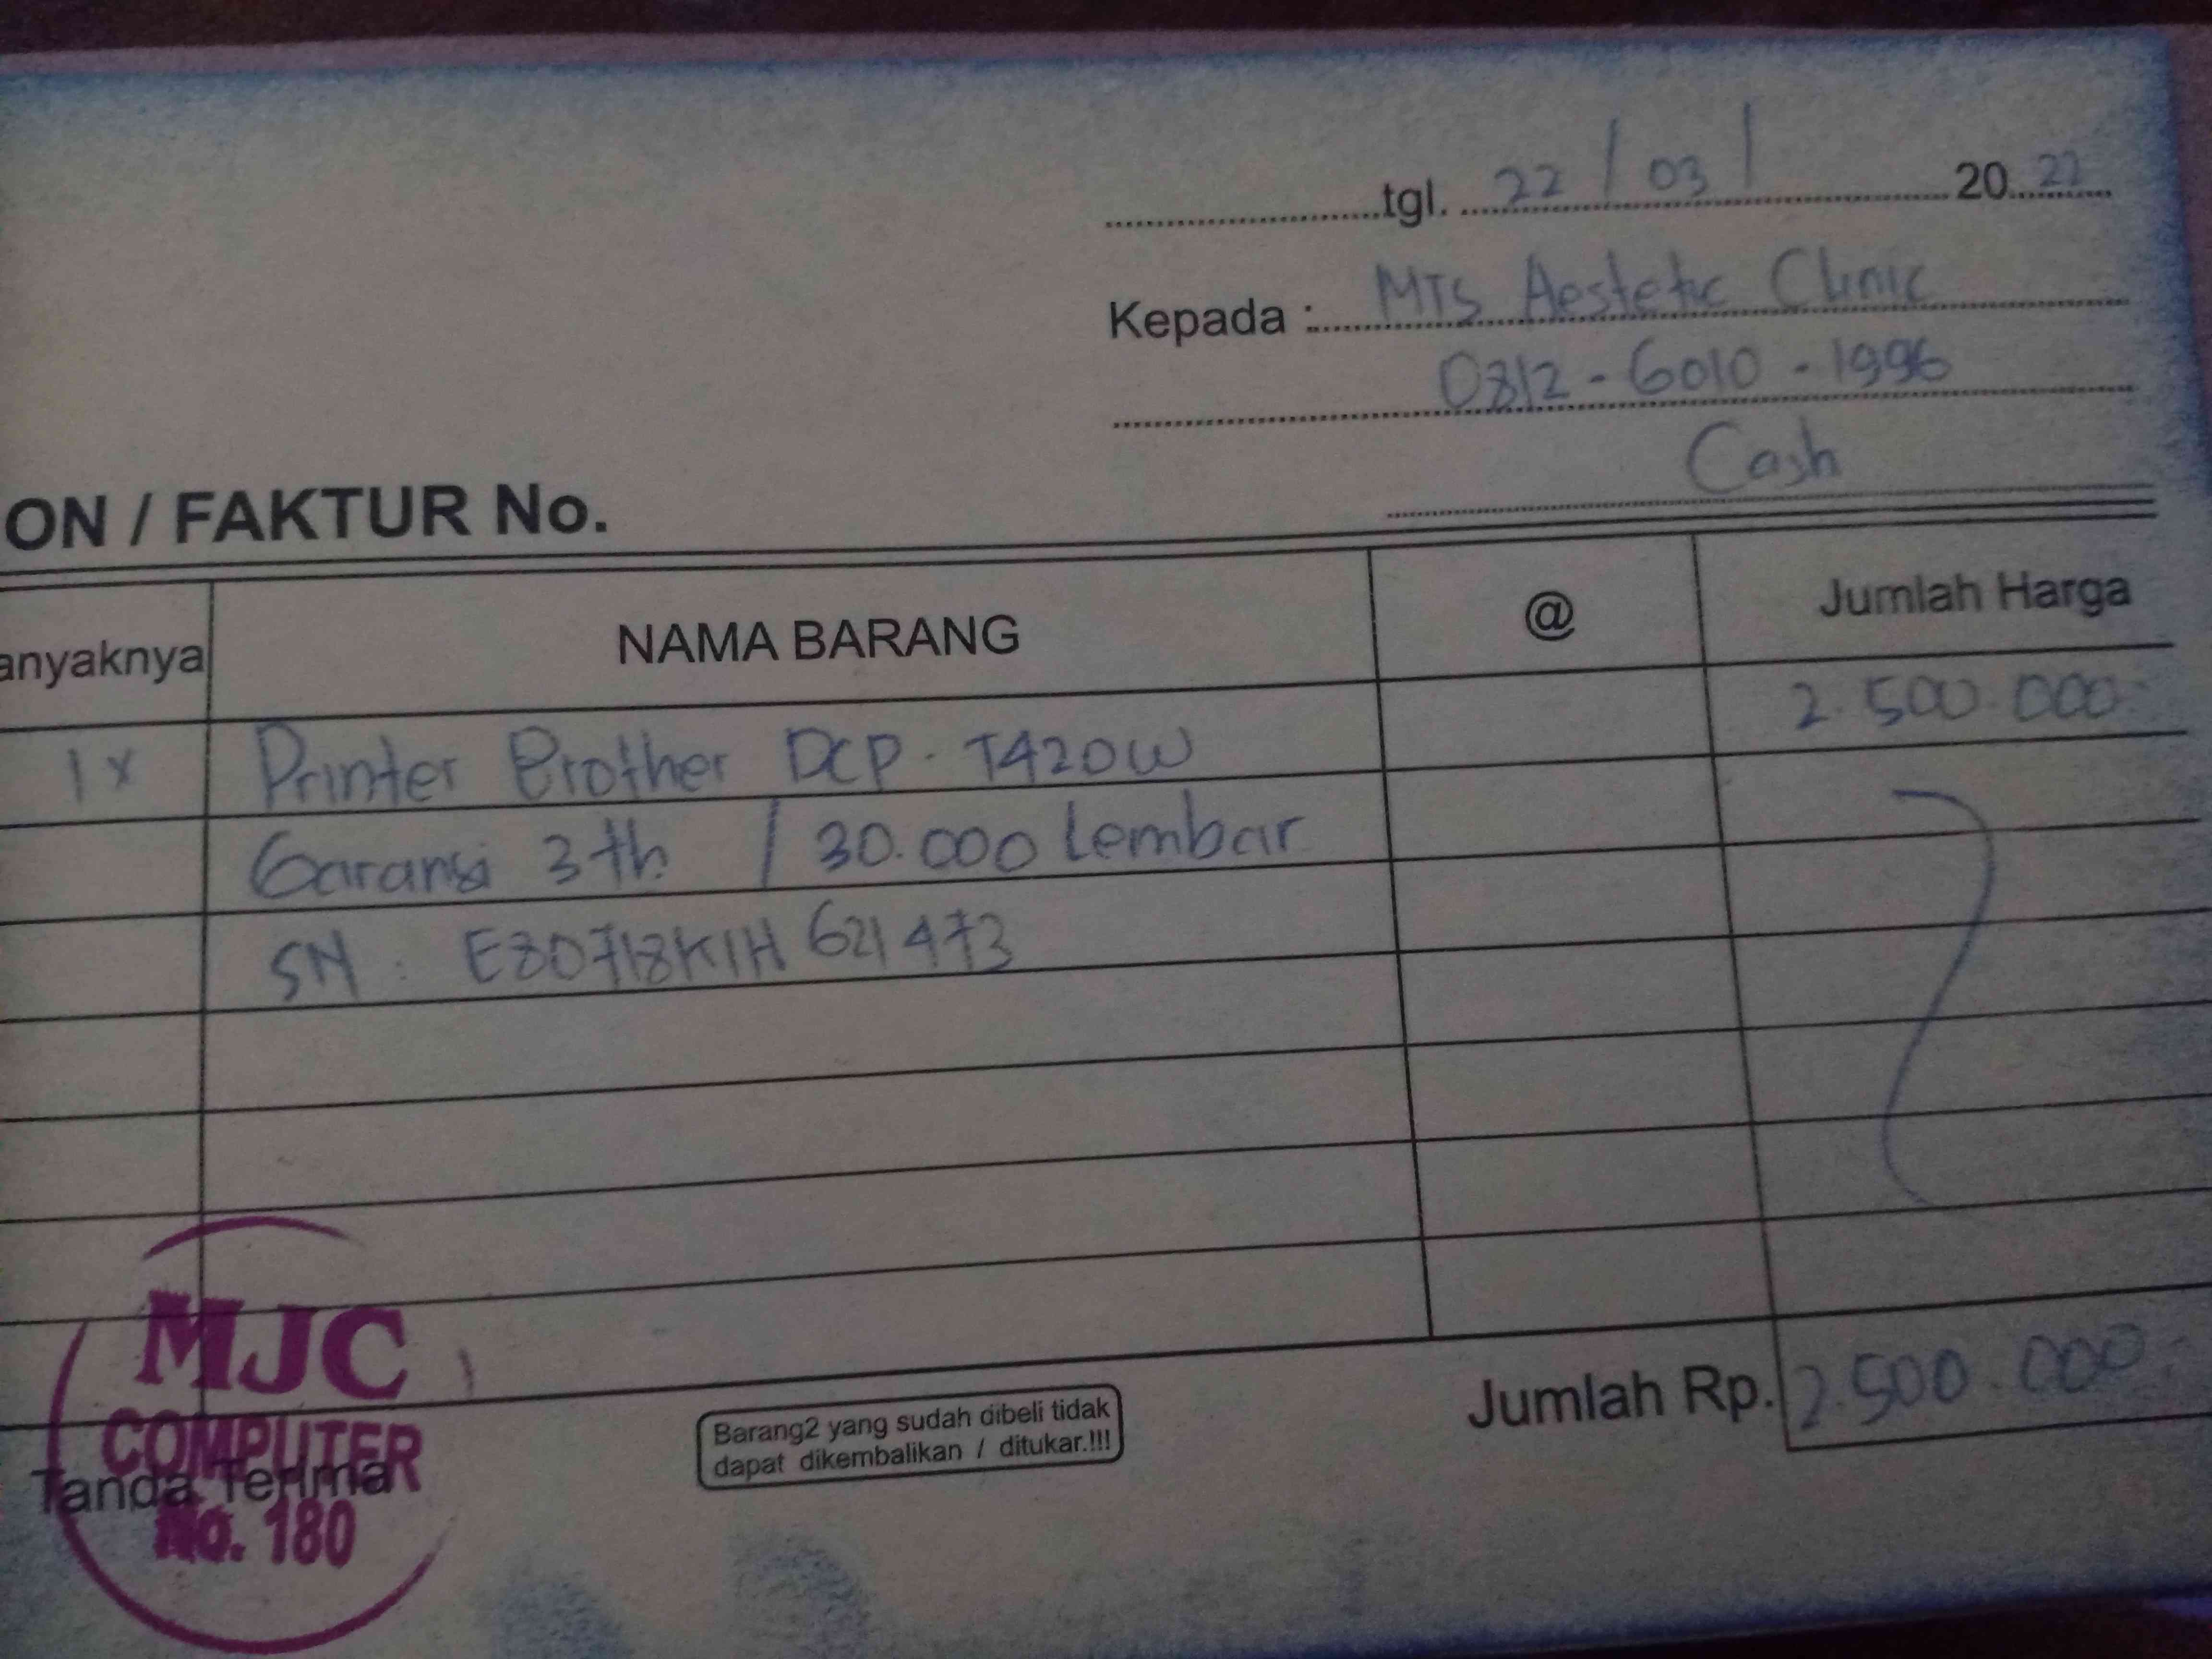 tgl. 22 / 03 / 2022
Kepada : MTS Aestetic Clinic
0812-6010-1996
Cash
ON / FAKTUR No.
anyaknya NAMA BARANG @ Jumlah Harga
1x Printer Brother DCP-T420W 2.500.000
Garansi 3 th / 30.000 Lembar
SN : E80718K1H621473
Jumlah Rp. 2.500.000
Barang2 yang sudah dibeli tidak
dapat dikembalikan / ditukar.!!!
MJC
COMPUTER
Tanda Terima
No. 180